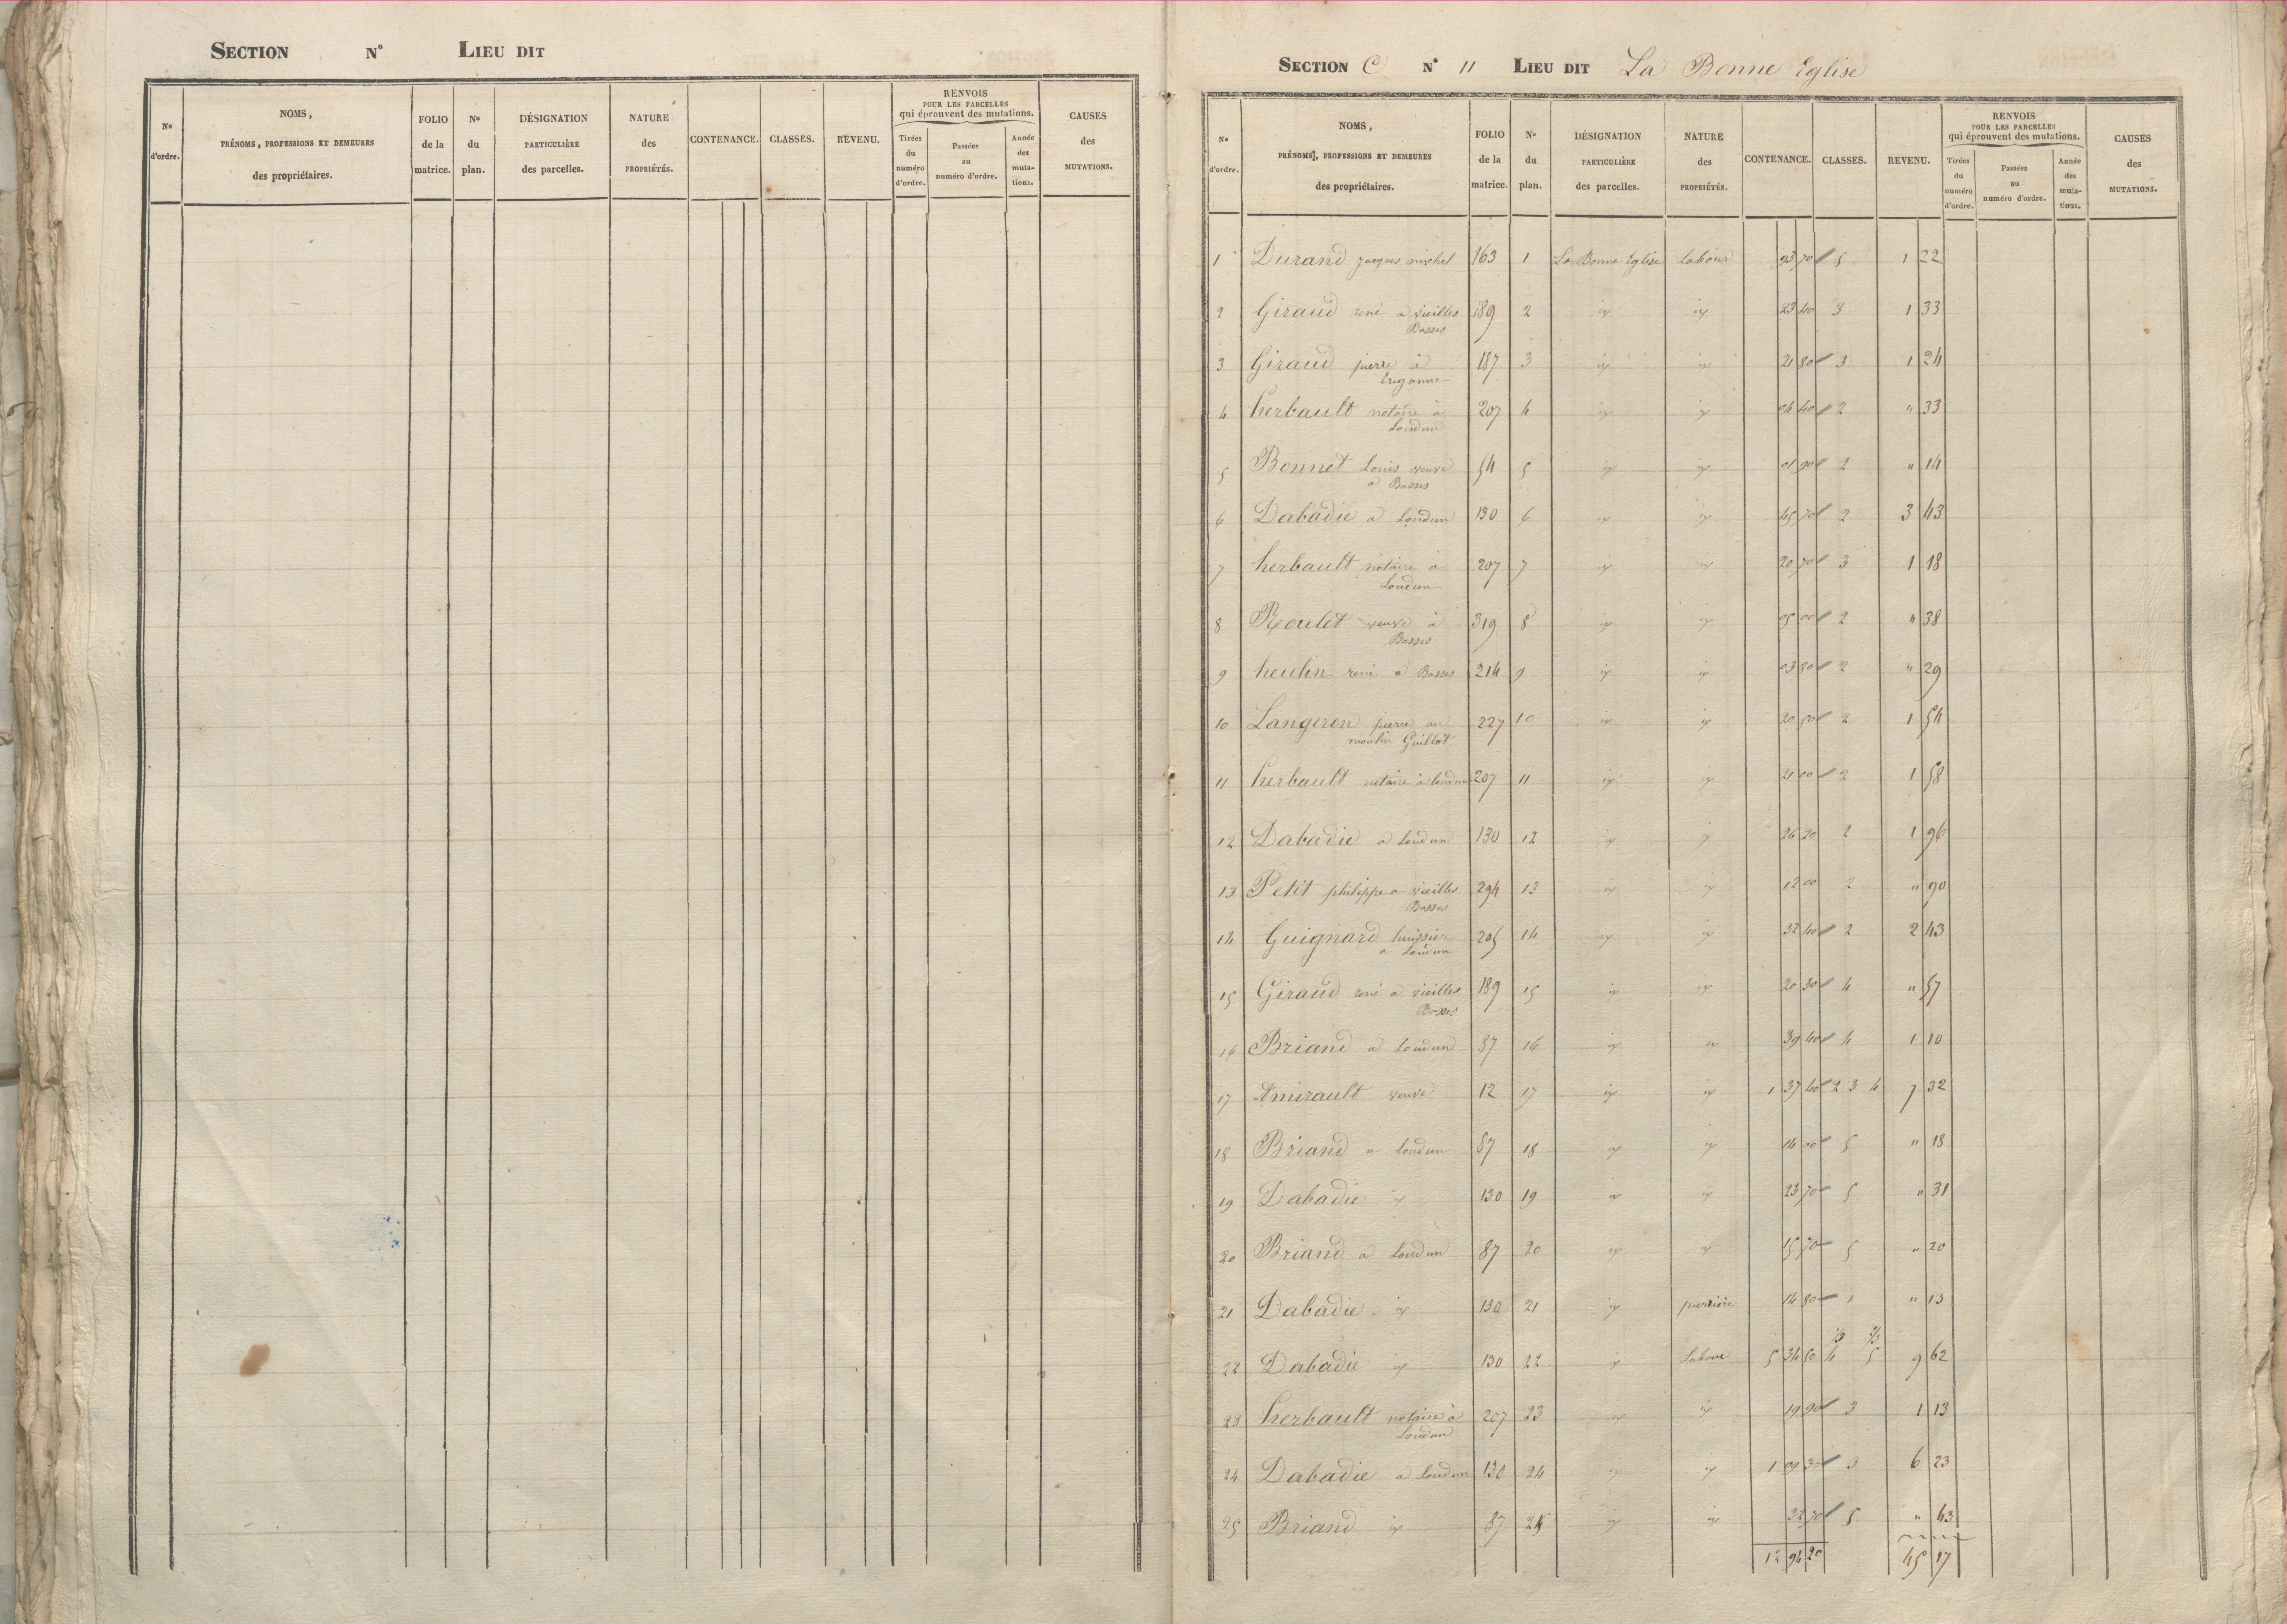 SECTION N° LIEU DIT
N° d'ordre.
NOMS,
PRÉNOMS, PROFESSIONS ET DEMEURES
des propriétaires.
FOLIO de la matrice.
N° du plan.
DÉSIGNATION PARTICULIÈRE des parcelles.
NATURE des PROPRIÉTÉS.
CONTENANCE.
CLASSES.
REVENU.
RENVOIS
POUR LES PARCELLES
qui éprouvent des mutations.
Tirées du numéro d'ordre.
Passées au numéro d'ordre.
Année des mutations.
CAUSES des MUTATIONS.
SECTION C N° 11 LIEU DIT La Bonne Eglise
N° d'ordre.
NOMS,
PRÉNOMS, PROFESSIONS ET DEMEURES
des propriétaires.
FOLIO de la matrice.
N° du plan.
DÉSIGNATION PARTICULIÈRE des parcelles.
NATURE des PROPRIÉTÉS.
CONTENANCE.
CLASSES.
REVENU.
RENVOIS
POUR LES PARCELLES
qui éprouvent des mutations.
Tirées du numéro d'ordre.
Passées au numéro d'ordre.
Année des mutations.
CAUSES des MUTATIONS.
1 Durand Jacques michel 163 1 La Bonne Eglise Labour 93 70 5 1 22
2 Giraud rené a vieilles 189 2 id id 23 40 3 1 33
Basses
3 Giraud pierre à 187 3 id id 21 80 3 1 24
4 herbault notaire à 207 4 id id 04 40 2 " 33
Loudun
5 Bonnet Louis veuve 54 5 id id 01 90 2 " 14
a Basses
6 Dabadie a Loudun 130 6 id id 45 70 2 3 43
7 herbault notaire à 207 7 id id 20 70 3 1 18
Loudun
8 Roulet veuve à 319 8 id id 05 00 2 " 38
Basses
9 heulin rené a Basses 214 9 id id 03 80 2 " 29
10 Langeron pierre au 227 10 id id 20 50 2 1 54
moulin Guillot
11 herbault notaire à loudun 207 11 id id 21 00 2 1 58
12 Dabadie a Loudun 130 12 id id 26 20 2 1 96
13 Petit philippe a vieilles 294 13 id id 12 00 2 " 90
Basses
14 Guignard huissier 205 14 id id 32 40 2 2 43
a Loudun
15 Giraud rené a vieilles 189 15 id id 20 30 4 " 57
Basses
16 Briand a Loudun 87 16 id id 39 40 4 1 10
17 Amirault veuve 12 17 id id 1 37 40 2 3 4 7 32
18 Briand a Loudun 87 18 id id 14 00 5 " 18
19 Dabadie id 130 19 id id 23 70 5 " 31
20 Briand a Loudun 87 20 id id 15 70 5 " 20
21 Dabadie id 130 21 id perriére 14 80 1 " 13
1/3 2/3
22 Dabadie id 130 22 id Labour 5 34 50 4 5 9 62
23 herbault notaire à 207 23 id id 19 90 3 1 13
Loudun
24 Dabadie a Loudun 130 24 id id 1 09 30 3 6 23
25 Briand id 87 25 id id 32 70 5 " 43
12 94 20 45 17